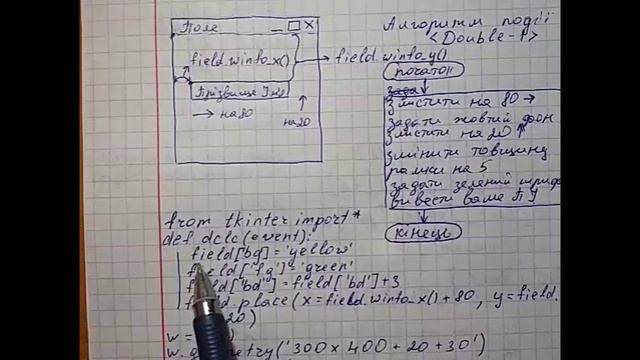 Поле
Алгоритм події
<Double-1>
field.winfo_x()
field.winfo_y()
початок
Прізвище Ім'я
→ на 80
на 20
зада
Змістити на 80 →
задати жовтий фон
змістити на 20 ↑
змінити товщину
рамки на 5
задати зелений шрифт
вивести ваше ПІ
кінець
from tkinter import *
def dclc(event):
field[bg]='yellow'
field['fg']='green'
field['bd']=field['bd']+3
field.place(x=field.winfo_x()+80, y=field.
20)
w =
w.g metry('300x400+20+30')